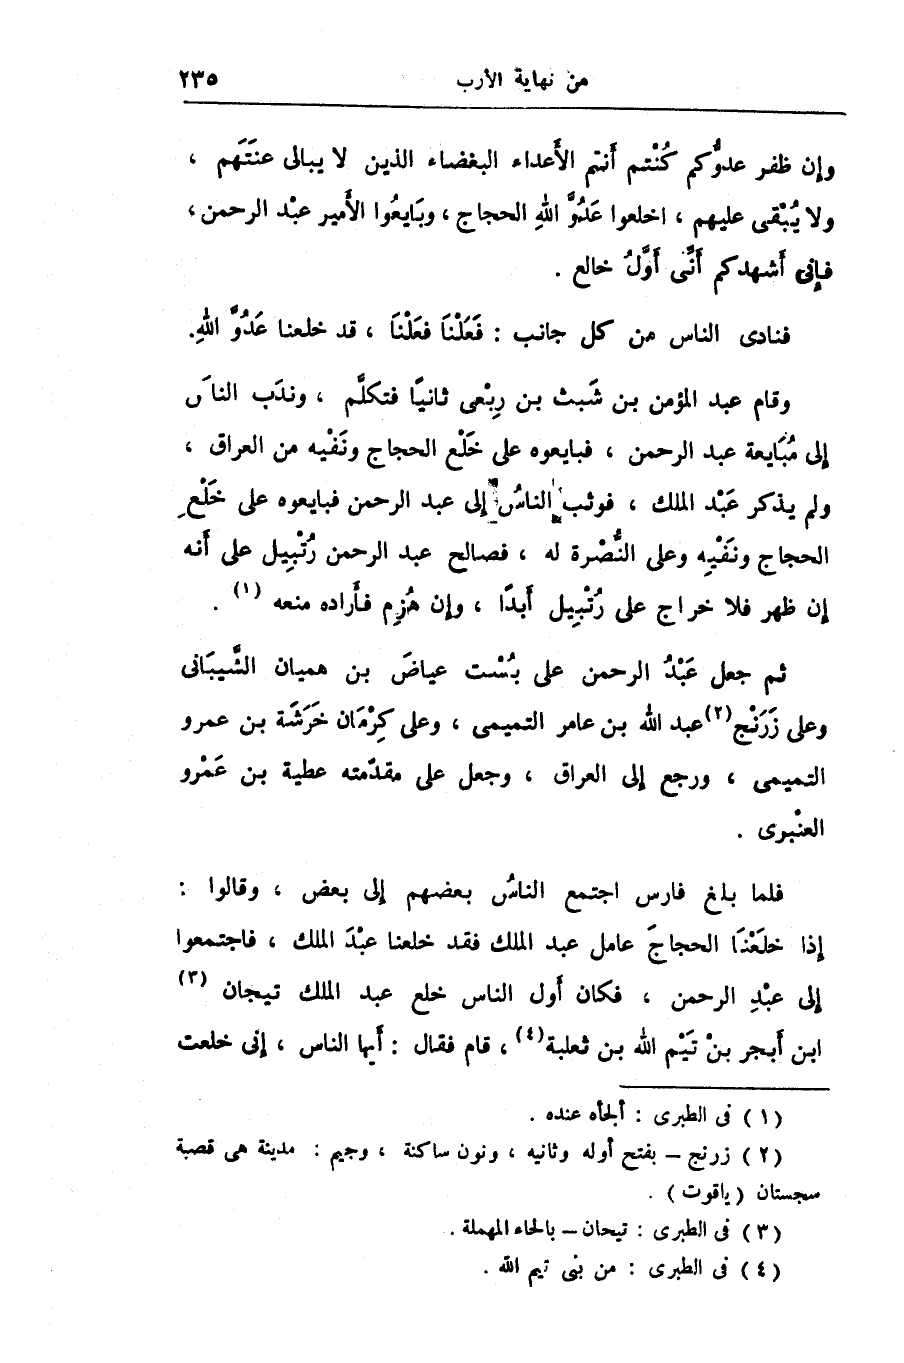 من نهاية الأرب ٢٣٥
وإن ظفر عدوُّكم كُنْتم أنتم الأَعداء البغضاء الذين لا يبالى عنَتَهم ،
ولا يُبْقى عليهم ، اخلعوا عَدُوَّ اللهِ الحجاج ، وبَايعُوا الأَمير عبْد الرحمن ،
فإنى أشهدكم أَنَّى أَوَّلُ خالع .
فنادى الناس من كل جانب : فَعَلْنَا فعَلْنَا ، قد خلعنا عَدُوَّ اللهِ.
وقام عبد المؤمن بن شَبث بن رِبْعى ثانيًا فتكلَّم ، وندَب الناسَ
إلى مُبَايعة عبد الرحمن ، فبايعوه على خَلْع الحجاج ونَفْيه من العراق ،
ولم يذكر عَبْد الملك ، فوثب الناسُ إلى عبد الرحمن فبايعوه على خَلْعِ
الحجاج ونفْيِه وعلى النُّصْرة له ، فصالح عبد الرحمن رُتْبِيل على أنه
إن ظهر فلا خراج على رُتْبِيل أَبدًا ، وإن هُزِم فأَراده منعه (١) .
ثم جعل عَبْدُ الرحمن على بُسْت عياضَ بن هميان الشَّيبَانى
وعلى زَرَنْج(٢) عبد الله بن عامر التميمى ، وعلى كِرْمَان خَرَشَة بن عمرو
التميمى ، ورجع إلى العراق ، وجعل على مقدّمته عطية بن عَمْرو
العنْبرى .
فلما بلغ فارس اجتمع الناسُ بعضهم إلى بعض ، وقالوا :
إذا خلَعْنَا الحجاجَ عامل عبد الملك فقد خلعنا عبْدَ الملك ، فاجتمعوا
إلى عبْدِ الرحمن ، فكان أَول الناس خلع عبد الملك تيجان (٣)
ابن أَبجر بنْ تَيْم الله بن ثعلبة(٤) ، قام فقال : أَيها الناس ، إنى خلعت
(١) فى الطبرى : ألجأه عنده .
(٢) زرنج – بفتح أوله وثانيه ، ونون ساكنة ، وجيم : مدينة هى قصبة
سجستان (ياقوت) .
(٣) فى الطبرى : تيحان – بالحاء المهملة .
(٤) فى الطبرى : من بنى تيم الله .